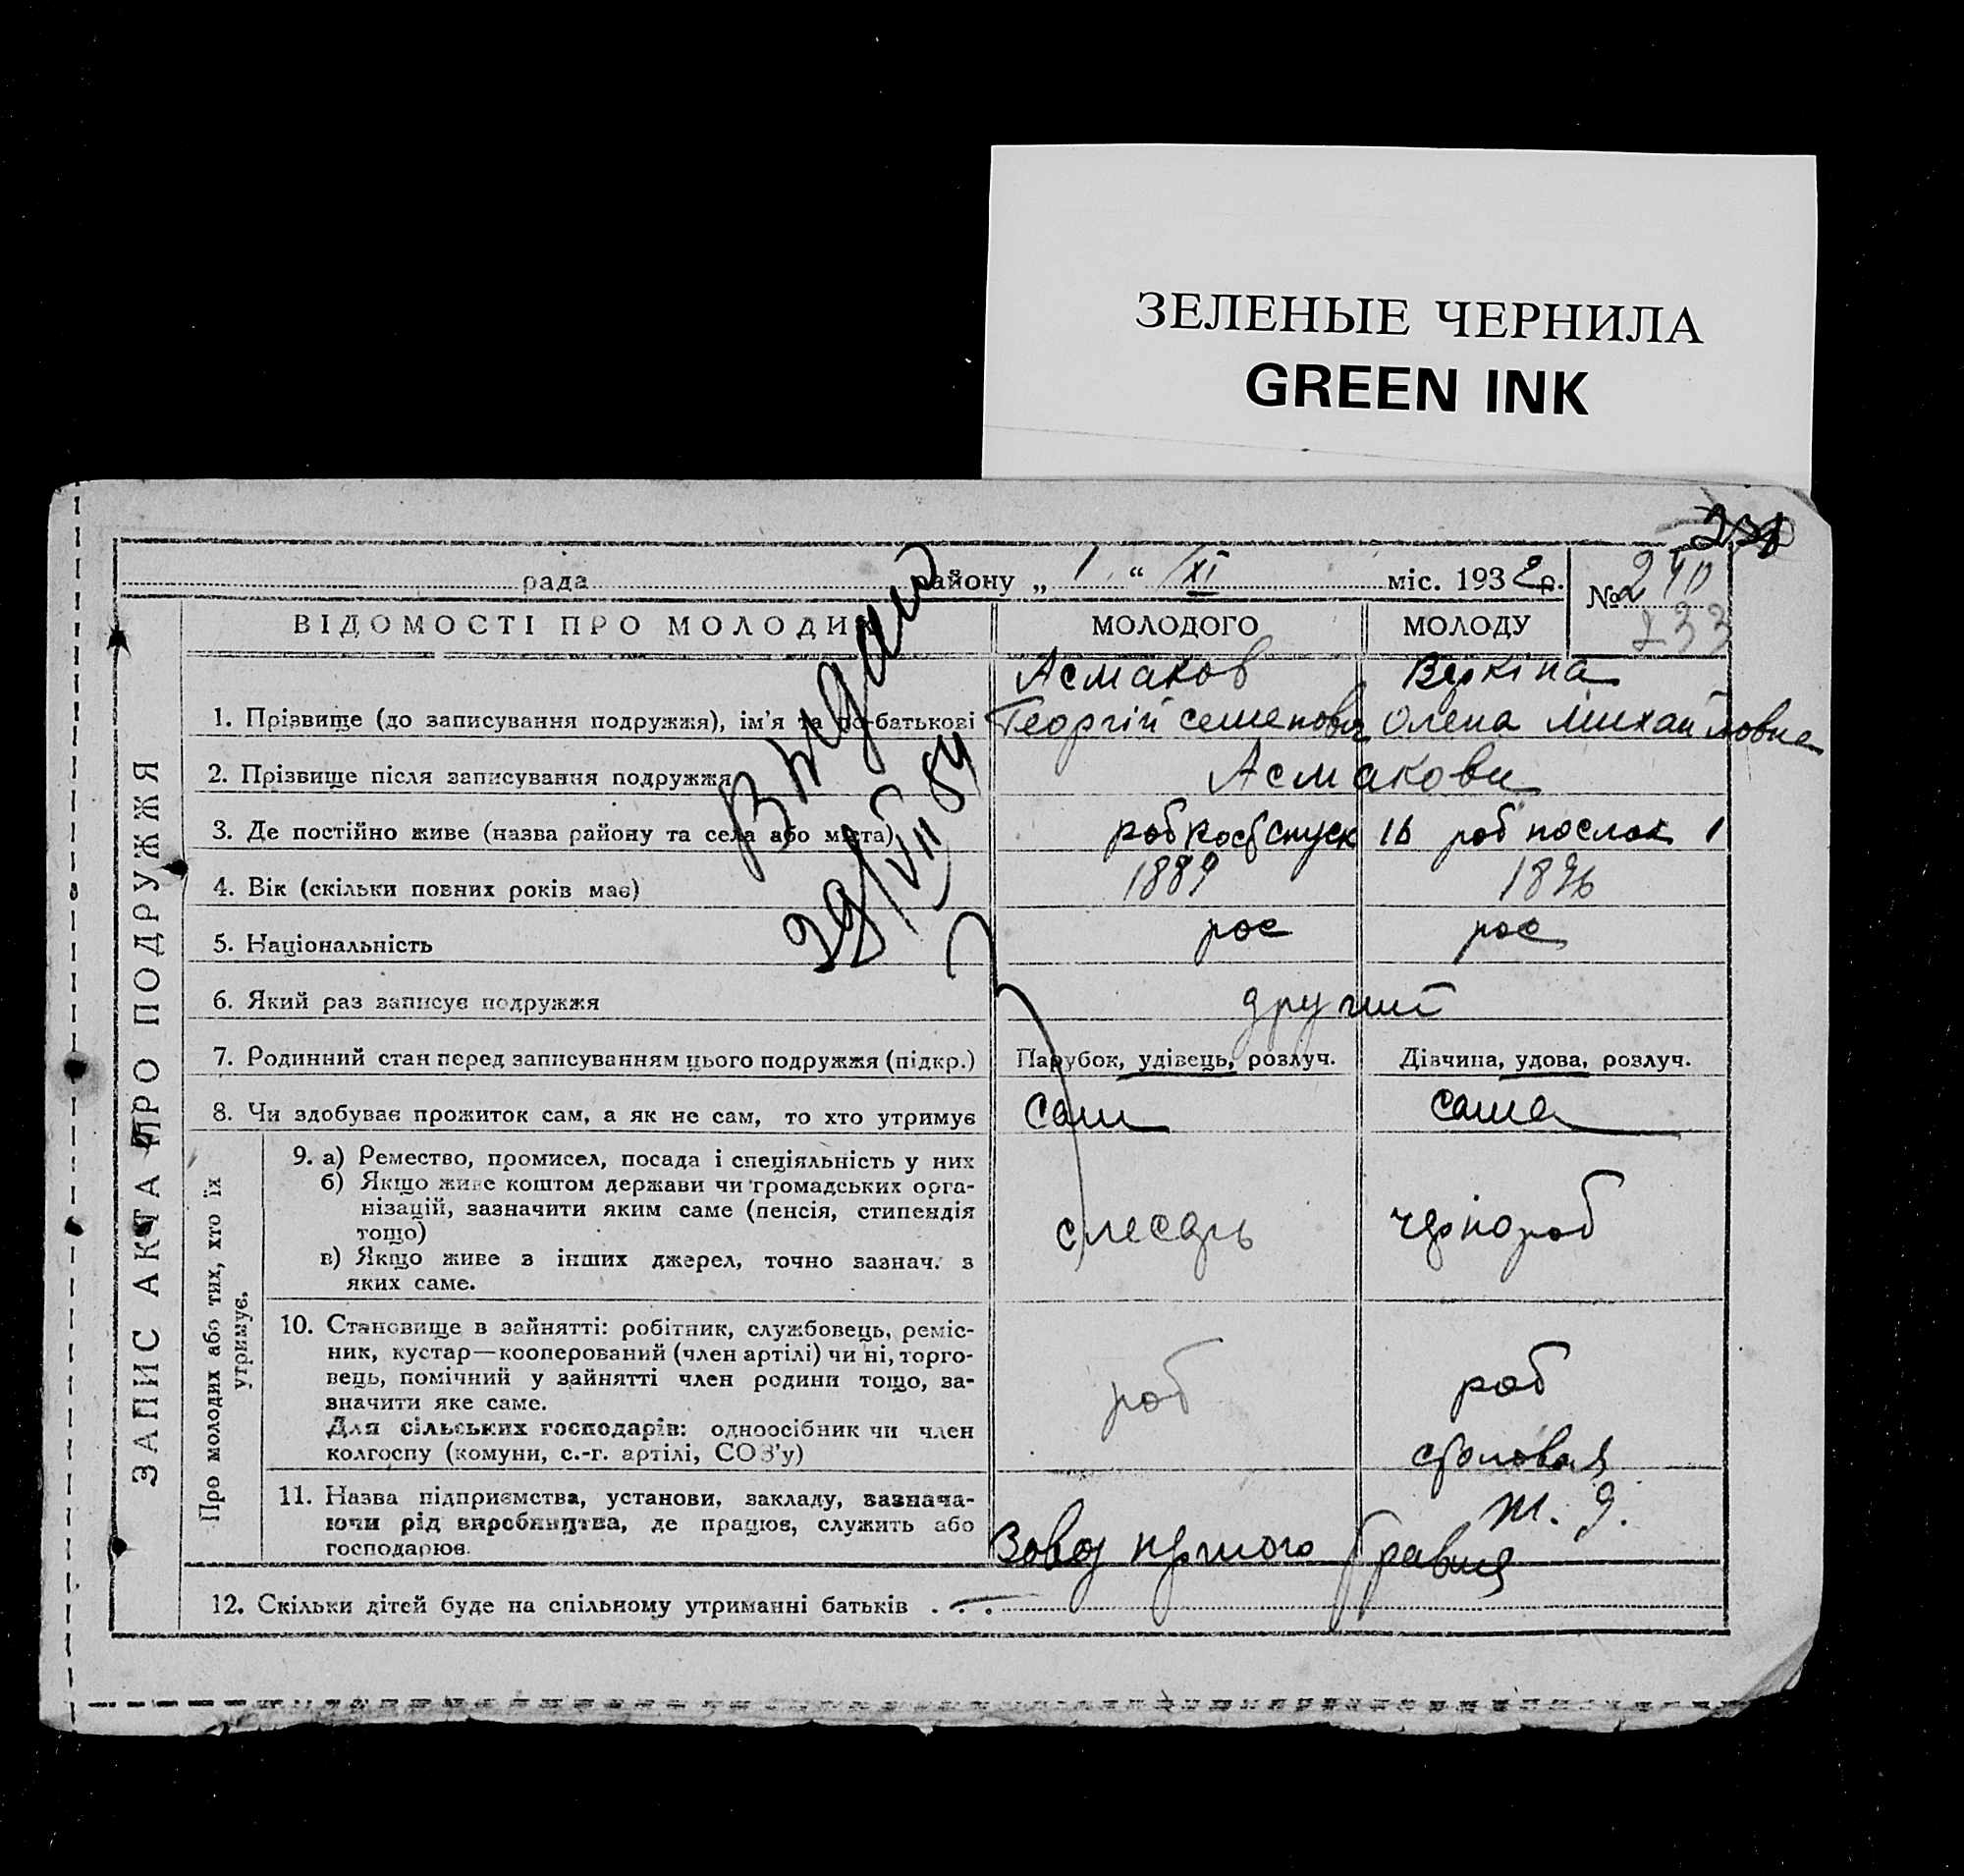 ЗЕЛЕНЫЕ ЧЕРНИЛА
GREEN INK
рада району „ 1 “ XI міс. 1932 р. № 240
233
ВІДОМОСТІ ПРО МОЛОДИХ МОЛОДОГО МОЛОДУ
Асмаков Веркіна
1. Прізвище (до записування подружжя), ім'я та по-батькові Георгій семенович Олена Михайловна
2. Прізвище після записування подружжя Асмакови
3. Де постійно живе (назва району та села або міста) 16 роб 1
4. Вік (скільки повних років має) 1889 1896
5. Національність рос рос
6. Який раз записує подружжя другий
7. Родинний стан перед записуванням цього подружжя (підкр.) Парубок, удівець, розлуч. Дівчина, удова, розлуч.
8. Чи здобуває прожиток сам, а як не сам, то хто утримує Сам сама
9. а) Ремество, промисел, посада і спеціяльність у них
б) Якщо живе коштом держави чи громадських орга-
нізацій, зазначити яким саме (пенсія, стипендія
тощо)
слесарь чернороб
в) Якщо живе з інших джерел, точно зазнач. з
яких саме.
10. Становище в зайнятті: робітник, службовець, реміс-
ник, кустар—кооперований (член артілі) чи ні, торго-
вець, помічний у зайнятті член родини тощо, за-
значити яке саме.
роб роб
Для сільських господарів: одноосібник чи член
колгоспу (комуни, с.-г. артілі, СОЗ'у)
столовая
11. Назва підприємства, установи, закладу, зазнача-
ючи рід виробництва, де працює, служить або
господарює.
Завод першого травня
12. Скільки дітей буде на спільному утриманні батьків . . .
ЗАПИС АКТА ПРО ПОДРУЖЖЯ
Про молодих або тих, хто їх
утримує.
29/VII 54